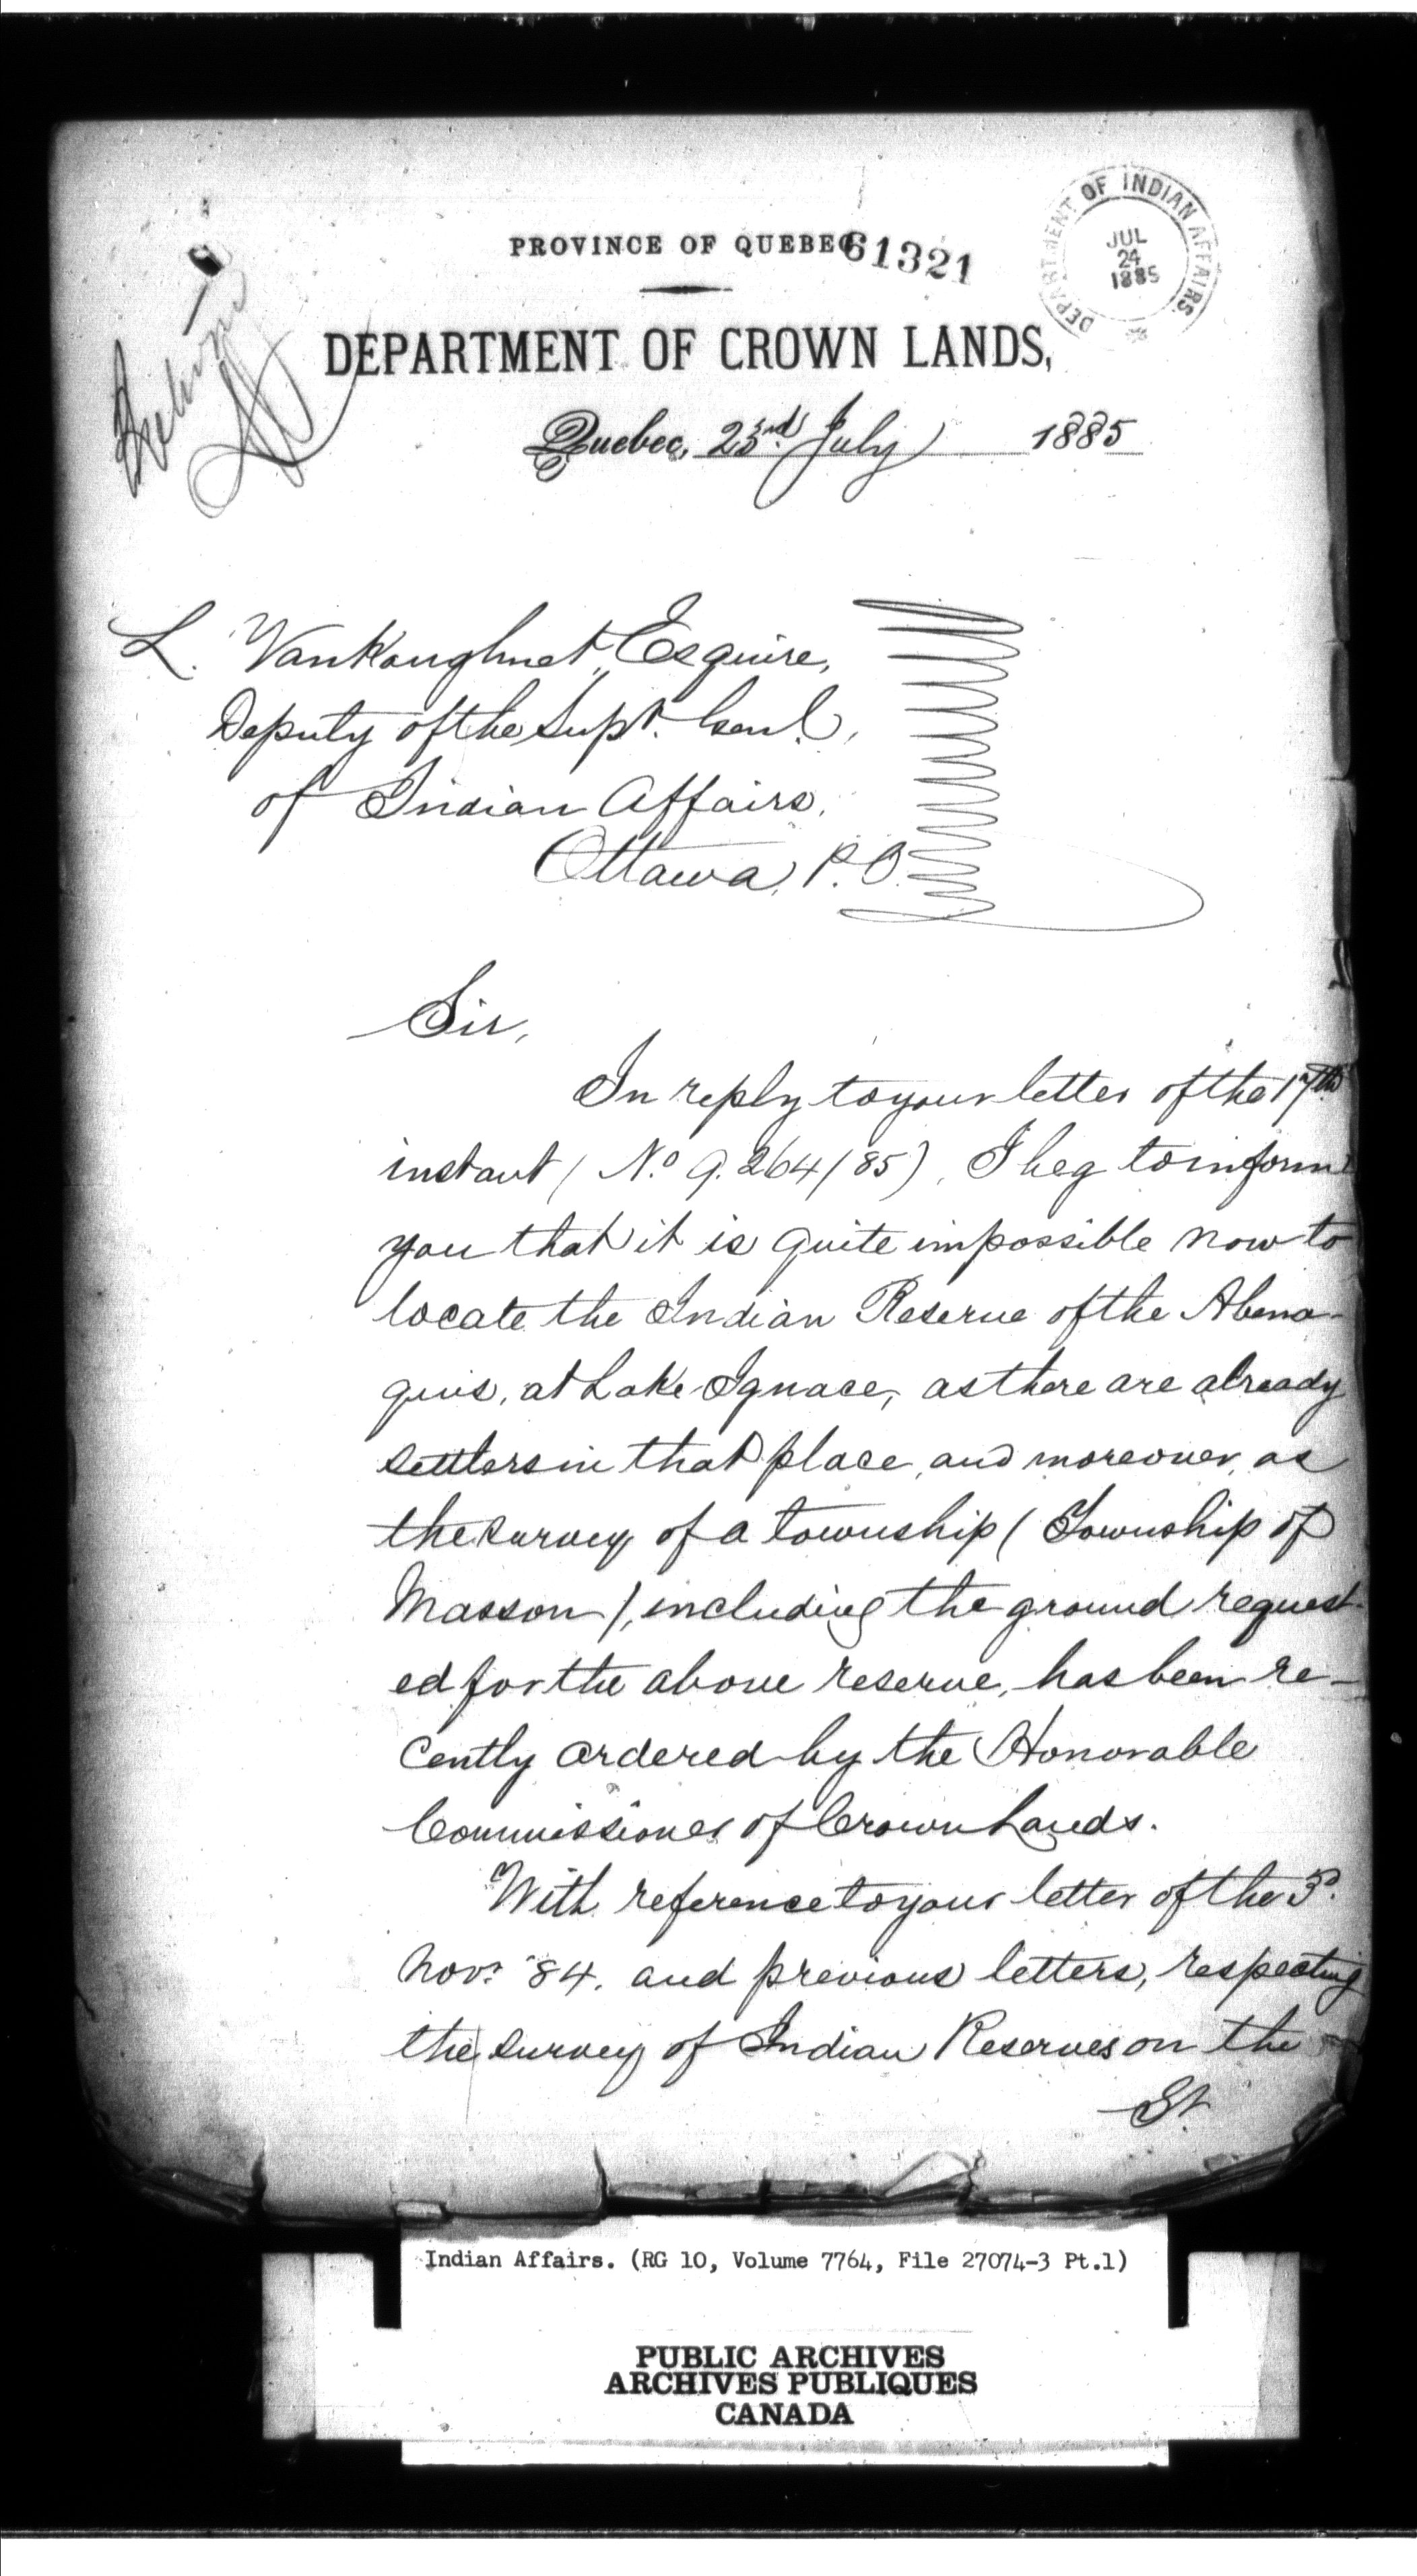 PROVINCE OF QUEBEC
61321
DEPARTMENT OF INDIAN AFFAIRS.
JUL
24
1885
DEPARTMENT OF CROWN LANDS,
Quebec, 23rd July 1885
L. VanKoughnet, Esquire,
Deputy of the Supt. Genl.,
of Indian Affairs.
Ottawa, P.O.
Sir,
In reply to your letter of the 17th
instant (No. 9.264/85), I beg to inform
you that it is quite impossible now to
locate the Indian Reserve of the Abena-
quis, at Lake Ignace, as there are already
settlers in that place, and moreover, as
the survey of a township (Township of
Masson), including the ground request-
ed for the above reserve, has been re-
cently ordered by the Honorable
Commissioner of Crown Lands.
With reference to your letter of the 3d.
Novr. '84. and previous letters, respecting
the survey of Indian Reserves on the
St.
Indian Affairs. (RG 10, Volume 7764, File 27074-3 Pt.1)
PUBLIC ARCHIVES
ARCHIVES PUBLIQUES
CANADA